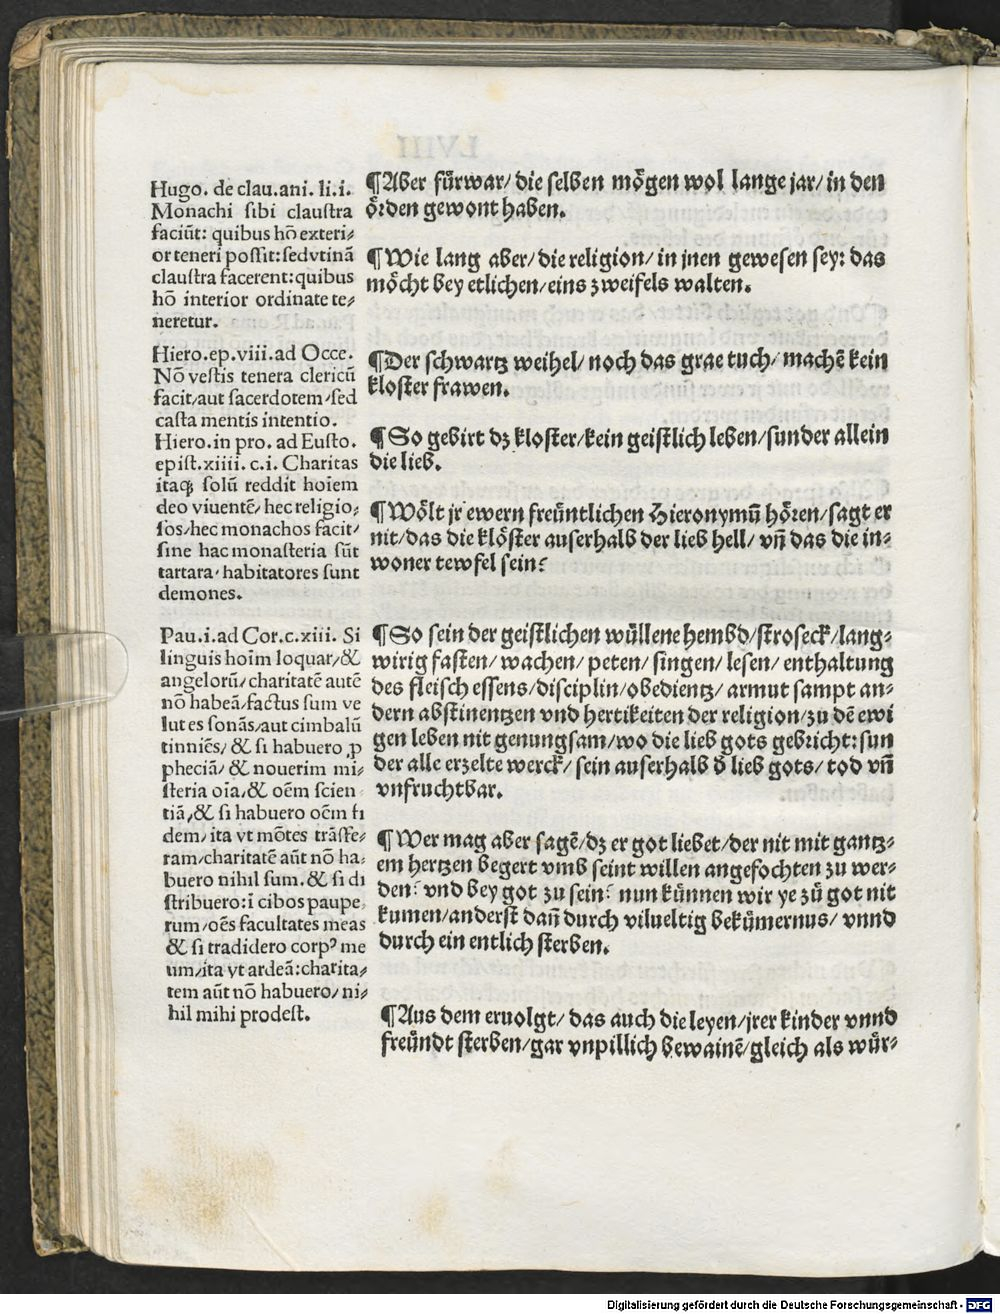 Hugo. de clau.ani. li.i.
Monachi sibi claustra
faciūt: quibus hō exteri⸗
or teneri possit:sedvtinā
claustra facerent:quibus
hō interior ordinate te⸗
neretur.
Hiero.ep.viii.ad Occe.
Nō vestis tenera clericū
facit/aut sacerdotem/sed
casta mentis intentio.
Hiero.in pro. ad Eusto.
epist.xiiii. c.i. Charitas
itaqꝫ solū reddit hoīem
deo viuentē/hec religio⸗
sos/hec monachos facit/
sine hac monasteria sūt
tartara/habitatores sunt
demones.
Pau.i.ad Cor.c.xiii. Si
linguis hoīm loquar/&
angelorū/charitatē autē
nō habeā/factus sum ve
lut es sonās/aut cimbalū
tinniēs/ & si habuero ꝓ
pheciā/ & nouerim mi⸗
steria oīa/& oēm scien
tiā/& si habuero oēm fi
dem/ ita vt mōtes trāsfe⸗
ram/charitatē aūt nō ha⸗
buero nihil sum. & si di
stribuero:i cibos paupe
rum/oēs facultates meas
& si tradidero corpꝰ me
um/ita vt ardeā:charita⸗
tem aūt nō habuero/ ni⸗
hil mihi prodest.
¶Aber fürwar/ die selben mögen wol lange jar/ in den
örden gewont haben.
¶Wie lang aber/ die religion/ in jnen gewesen sey: das
möcht bey etlichen/eins zweifels walten.
¶Der schwartz weihel/ noch das grae tuch/ machē kein
kloster frawen.
¶So gebirt dz kloster/kein geistlich leben/sunder allein
die lieb.
¶Wölt jr ewern freüntlichen Hieronymū hören/sagt er
nit/das die klöster auserhalb der lieb hell/ vn̄ das die in⸗
woner tewfel sein?
¶So sein der geistlichen wüllene hembd/stroseck/lang⸗
wirig fasten/ wachen/ peten/ singen/ lesen/ enthaltung
des fleisch essens/disciplin/obedientz/ armut sampt an⸗
dern abstinentzen vnd hertikeiten der religion/zu dē ewi
gen leben nit genungsam/wo die lieb gots gebricht:sun
der alle erzelte werck/ sein auserhalb d̄ lieb gots/ tod vn̄
vnfruchtbar.
¶Wer mag aber sagē/dz er got liebet/der nit mit gantz⸗
em hertzen begert vmb seint willen angefochten zu wer⸗
den? vnd bey got zu sein? nun künnen wir ye zů got nit
kumen/anderst dan̄ durch vilueltig bekümernus/ vnnd
durch ein entlich sterben.
¶Aus dem eruolgt/ das auch die leyen/jrer kinder vnnd
freündt sterben/gar vnpillich bewainē/gleich als wür⸗
Digitalisierung gefördert durch die Deutsche Forschungsgemeinschaft - DFG